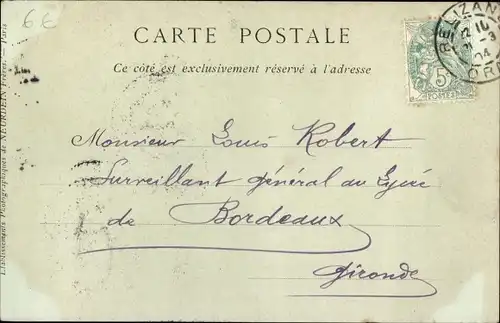 6€
CARTE POSTALE
Ce côté est exclusivement réservé à l'adresse
RELIZAN
ORA
04
5c
POSTES
Monsieur Louis Robert
Surveillant général au Lycée
de Bordeaux
Gironde
Etablissements Photographiques de NEURDEIN Frères. — Paris